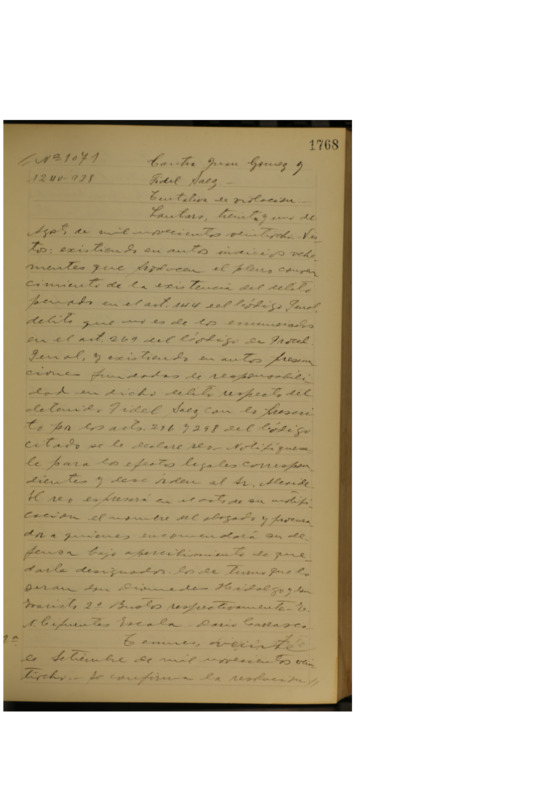 1768
Nº 1071 Contra Juan Gomez y
1240-928 Fidel Saez -
Tentativa de violacion
Lautaro, treinta y uno de
Agosto de mil novecientos veintiocho. Vis-
tos: existiendo en autos indicios vehe-
mentes que produzcan el pleno conven-
cimiento de la existencia del delito
penado en el art. 144 del Código Penal,
delito que no es de los enumerados
en el art. 269 del Código de Proced.
Penal, y existiendo en autos presun-
ciones fundadas de responsabili-
dad en dicho delito respecto del
detenido Fidel Saez con lo prescri-
to por los arts. 296 y 298 del Código
citado se le declara reo. Notifíquese-
le para los efectos legales correspon-
dientes y dese orden al Sr. Alcaide.
El reo expresará en el acto de su notifi-
cación el nombre del abogado y procura-
dor a quienes encomendará su de-
fensa bajo apercibimiento de que-
darle designados los de turno que lo
seran don Diomedes Hidalgo y don
Evaristo 2º Bustos respectivamente.
Cifuentes Escala - Dario Carrasco
Temuco,
de Setiembre de mil novecientos vein-
tiocho. - Se confirma la resolución